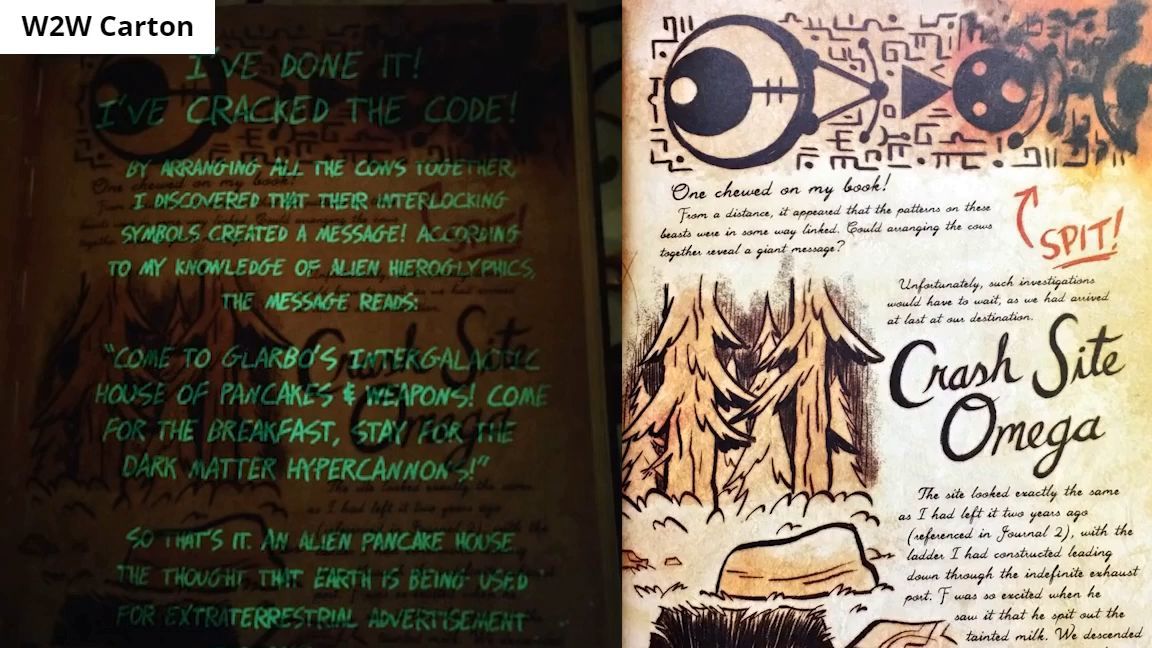 W2W Carton
I'VE DONE IT!
I'VE CRACKED THE CODE!
BY ARRANGING ALL THE COWS TOGETHER,
I DISCOVERED THAT THEIR INTERLOCKING
SYMBOLS CREATED A MESSAGE! ACCORDING
TO MY KNOWLEDGE OF ALIEN HIEROGLYPHICS,
THE MESSAGE READS:
"COME TO GLARBO'S INTERGALACTIC
HOUSE OF PANCAKES & WEAPONS! COME
FOR THE BREAKFAST, STAY FOR THE
DARK MATTER HYPERCANNONS!"
SO THAT'S IT. AN ALIEN PANCAKE HOUSE.
THE THOUGHT THAT EARTH IS BEING USED
FOR EXTRATERRESTRIAL ADVERTISEMENT
One chewed on my book!
From a distance, it appeared that the patterns on these
beasts were in some way linked. Could arranging the cows
together reveal a giant message?
SPIT!
Unfortunately, such investigations
would have to wait, as we had arrived
at last at our destination.
Crash Site
Omega
The site looked exactly the same
as I had left it two years ago
(referenced in Journal 2), with the
ladder I had constructed leading
down through the indefinite exhaust
port. F was so excited when he
saw it that he spit out the
tainted milk. We descended